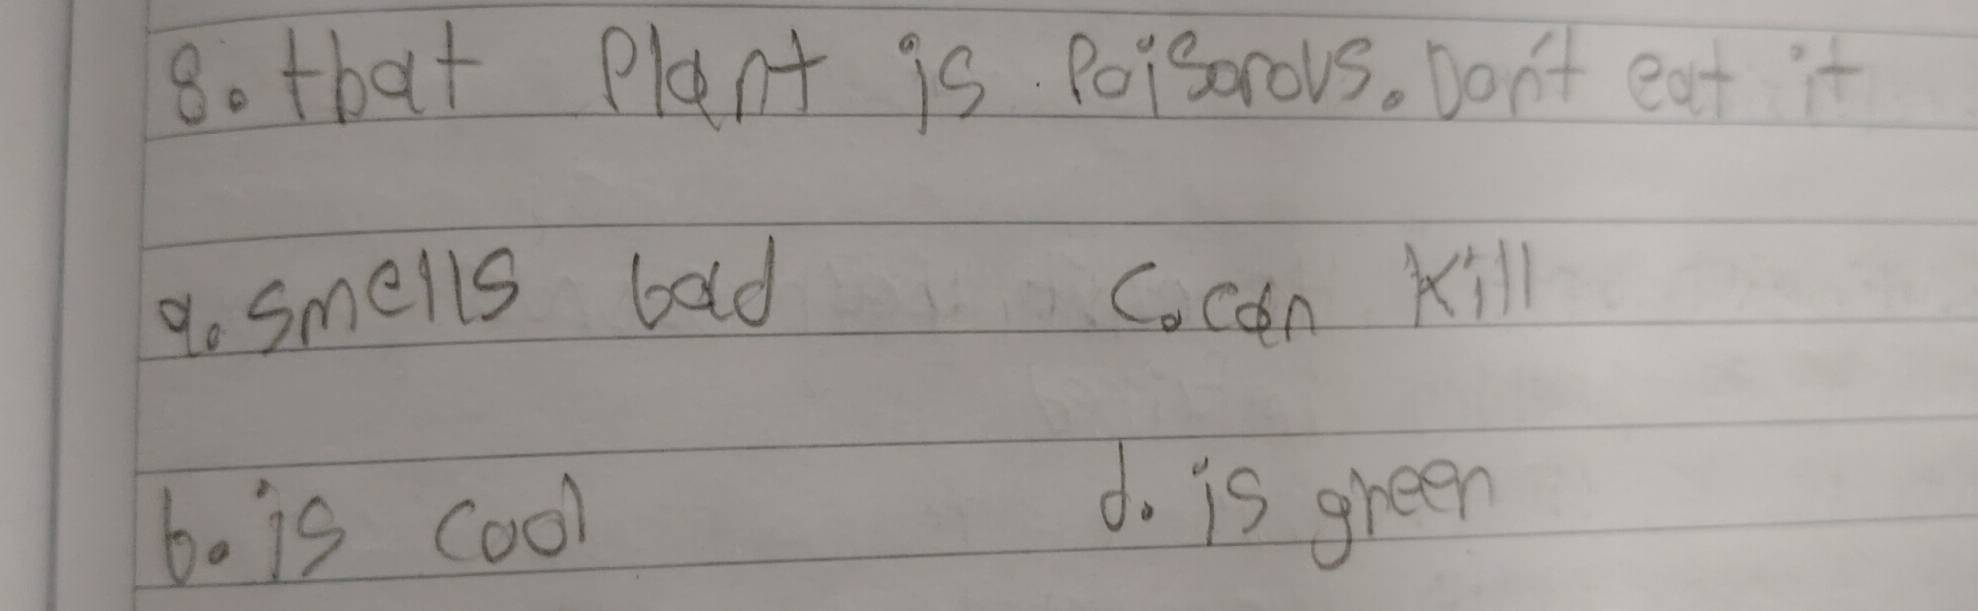 8. that Plant is Poisorous. Don't eat it
a. smells bad c. can kill
b. is cool d. is green